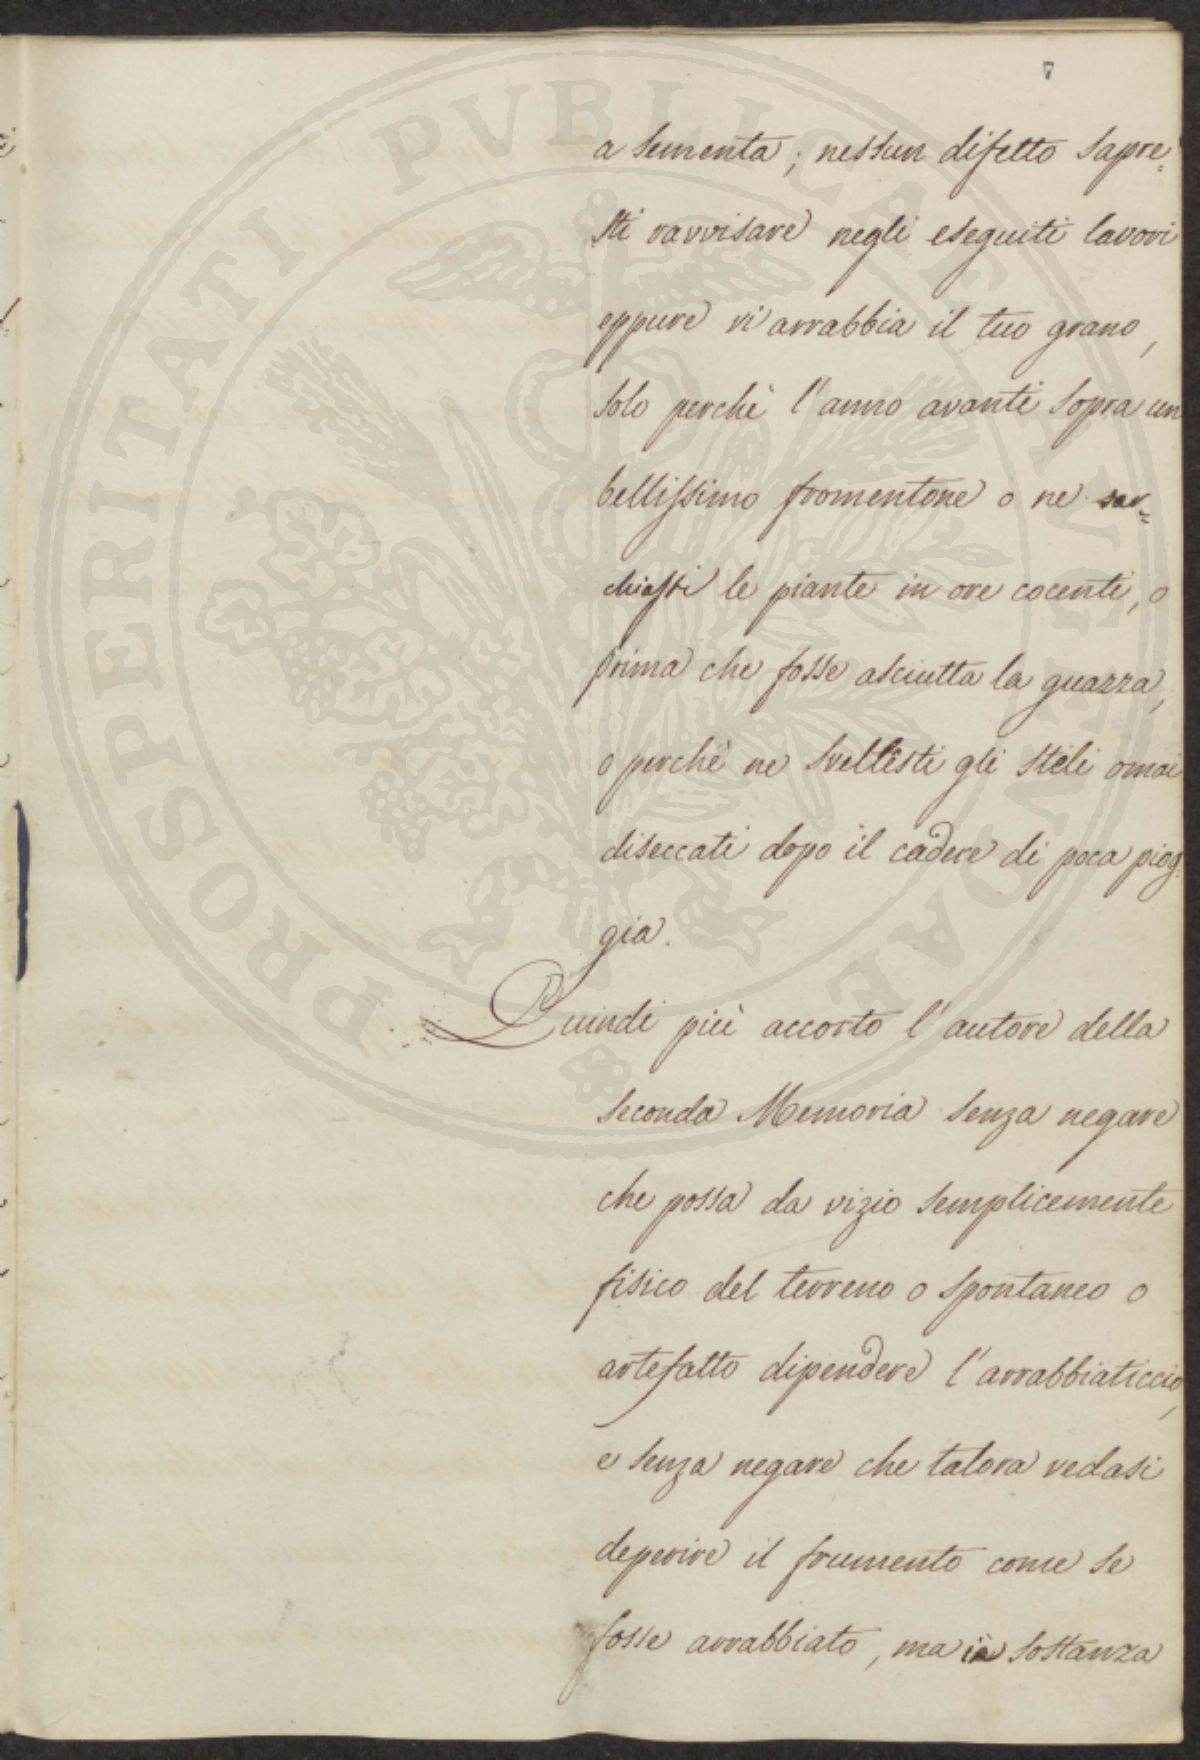 7
a sementa; nessun difetto sapre=
sti ravvisare negli eseguiti lavori
eppure vi arrabbia il tuo grano,
solo perchè l'anno avanti sopra un
bellissimo fromentone o ne sar=
chiasti le piante in ore cocenti, o
prima che fosse asciutta la guazza,
o perchè ne svellesti gli steli omai
diseccati dopo il cadere di poca piog=
gia.
Quindi più accorto l'autore della
seconda Memoria senza negare
che possa da vizio semplicemente
fisico del terreno o spontaneo o
artefatto dipendere l'arrabbiaticcio,
e senza negare che talora vedasi
deperire il frumento come se
fosse arrabbiato, ma in sostanza
PROSPERITATI PVBLICAE AVGENDAE